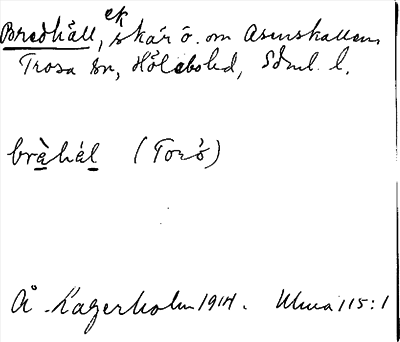 Bredhäll, ek
skär ö. om Asenskallen,
Trosa sn, Hölebohd, Sdml. l.
bràhál (Torö)
Å. Kagerholm 1914. Ulma 115:1